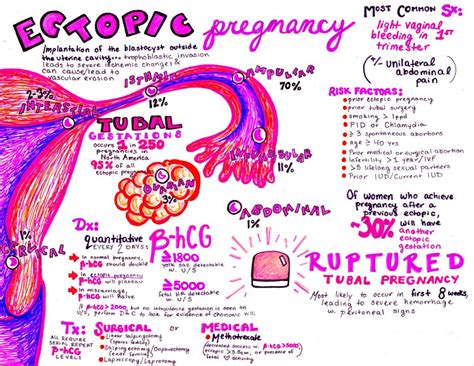 ECTOPIC pregnancy
Implantation of the blastocyst outside
the uterine cavity... trophoblastic invasion
leads to severe ischemic changes &
can cause/lead to
vascular erosion
MOST COMMON Sx:
light vaginal
bleeding in 1st
trimester
+/- Unilateral
abdominal
pain
ISTHMIC
12%
AMPULLAR
70%
2-3%
INTERSTITIAL
TUBAL
GESTATIONS
occurs 1 in 250
pregnancies in
North America
93% of all
ectopic
INFUNDIBULAR
11%
OVARIAN
3%
ABDOMINAL
1%
CERVICAL
<1%
RISK FACTORS:
prior ectopic pregnancy
prior tubal surgery
smoking > 1ppd
PID or Chlamydia
≥ 3 spontaneous abortions
age ≥ 40 yrs
Prior medical or surgical abortion
Infertility > 1 year/IVF
> 5 lifetime sexual partners
Prior IUD/Current IUD
Of women who achieve
pregnancy after a
previous ectopic,
~30% will have
another
ectopic
gestation
RUPTURED
TUBAL PREGNANCY
Most likely to occur in first 8 weeks,
leading to severe hemorrhage
w. peritoneal signs
Dx:
quantitative
EVERY 2 DAYS
β-hCG
In normal pregnancy,
β-hCG should double
In ectopic pregnancy
β-hCG will plateau
In miscarriage,
β-hCG will halve
≥1800
yolk sac detectable
w. U/S
≥5000
fetal HR detectable
w. U/S
Tx:
ALL REQUIRE
SERIAL REPEAT
β-hCG
LEVELS
SURGICAL
Linear salpingotomy
(spares fallopian)
Laparoscopy/Laparotomy
or
MEDICAL
Methotrexate